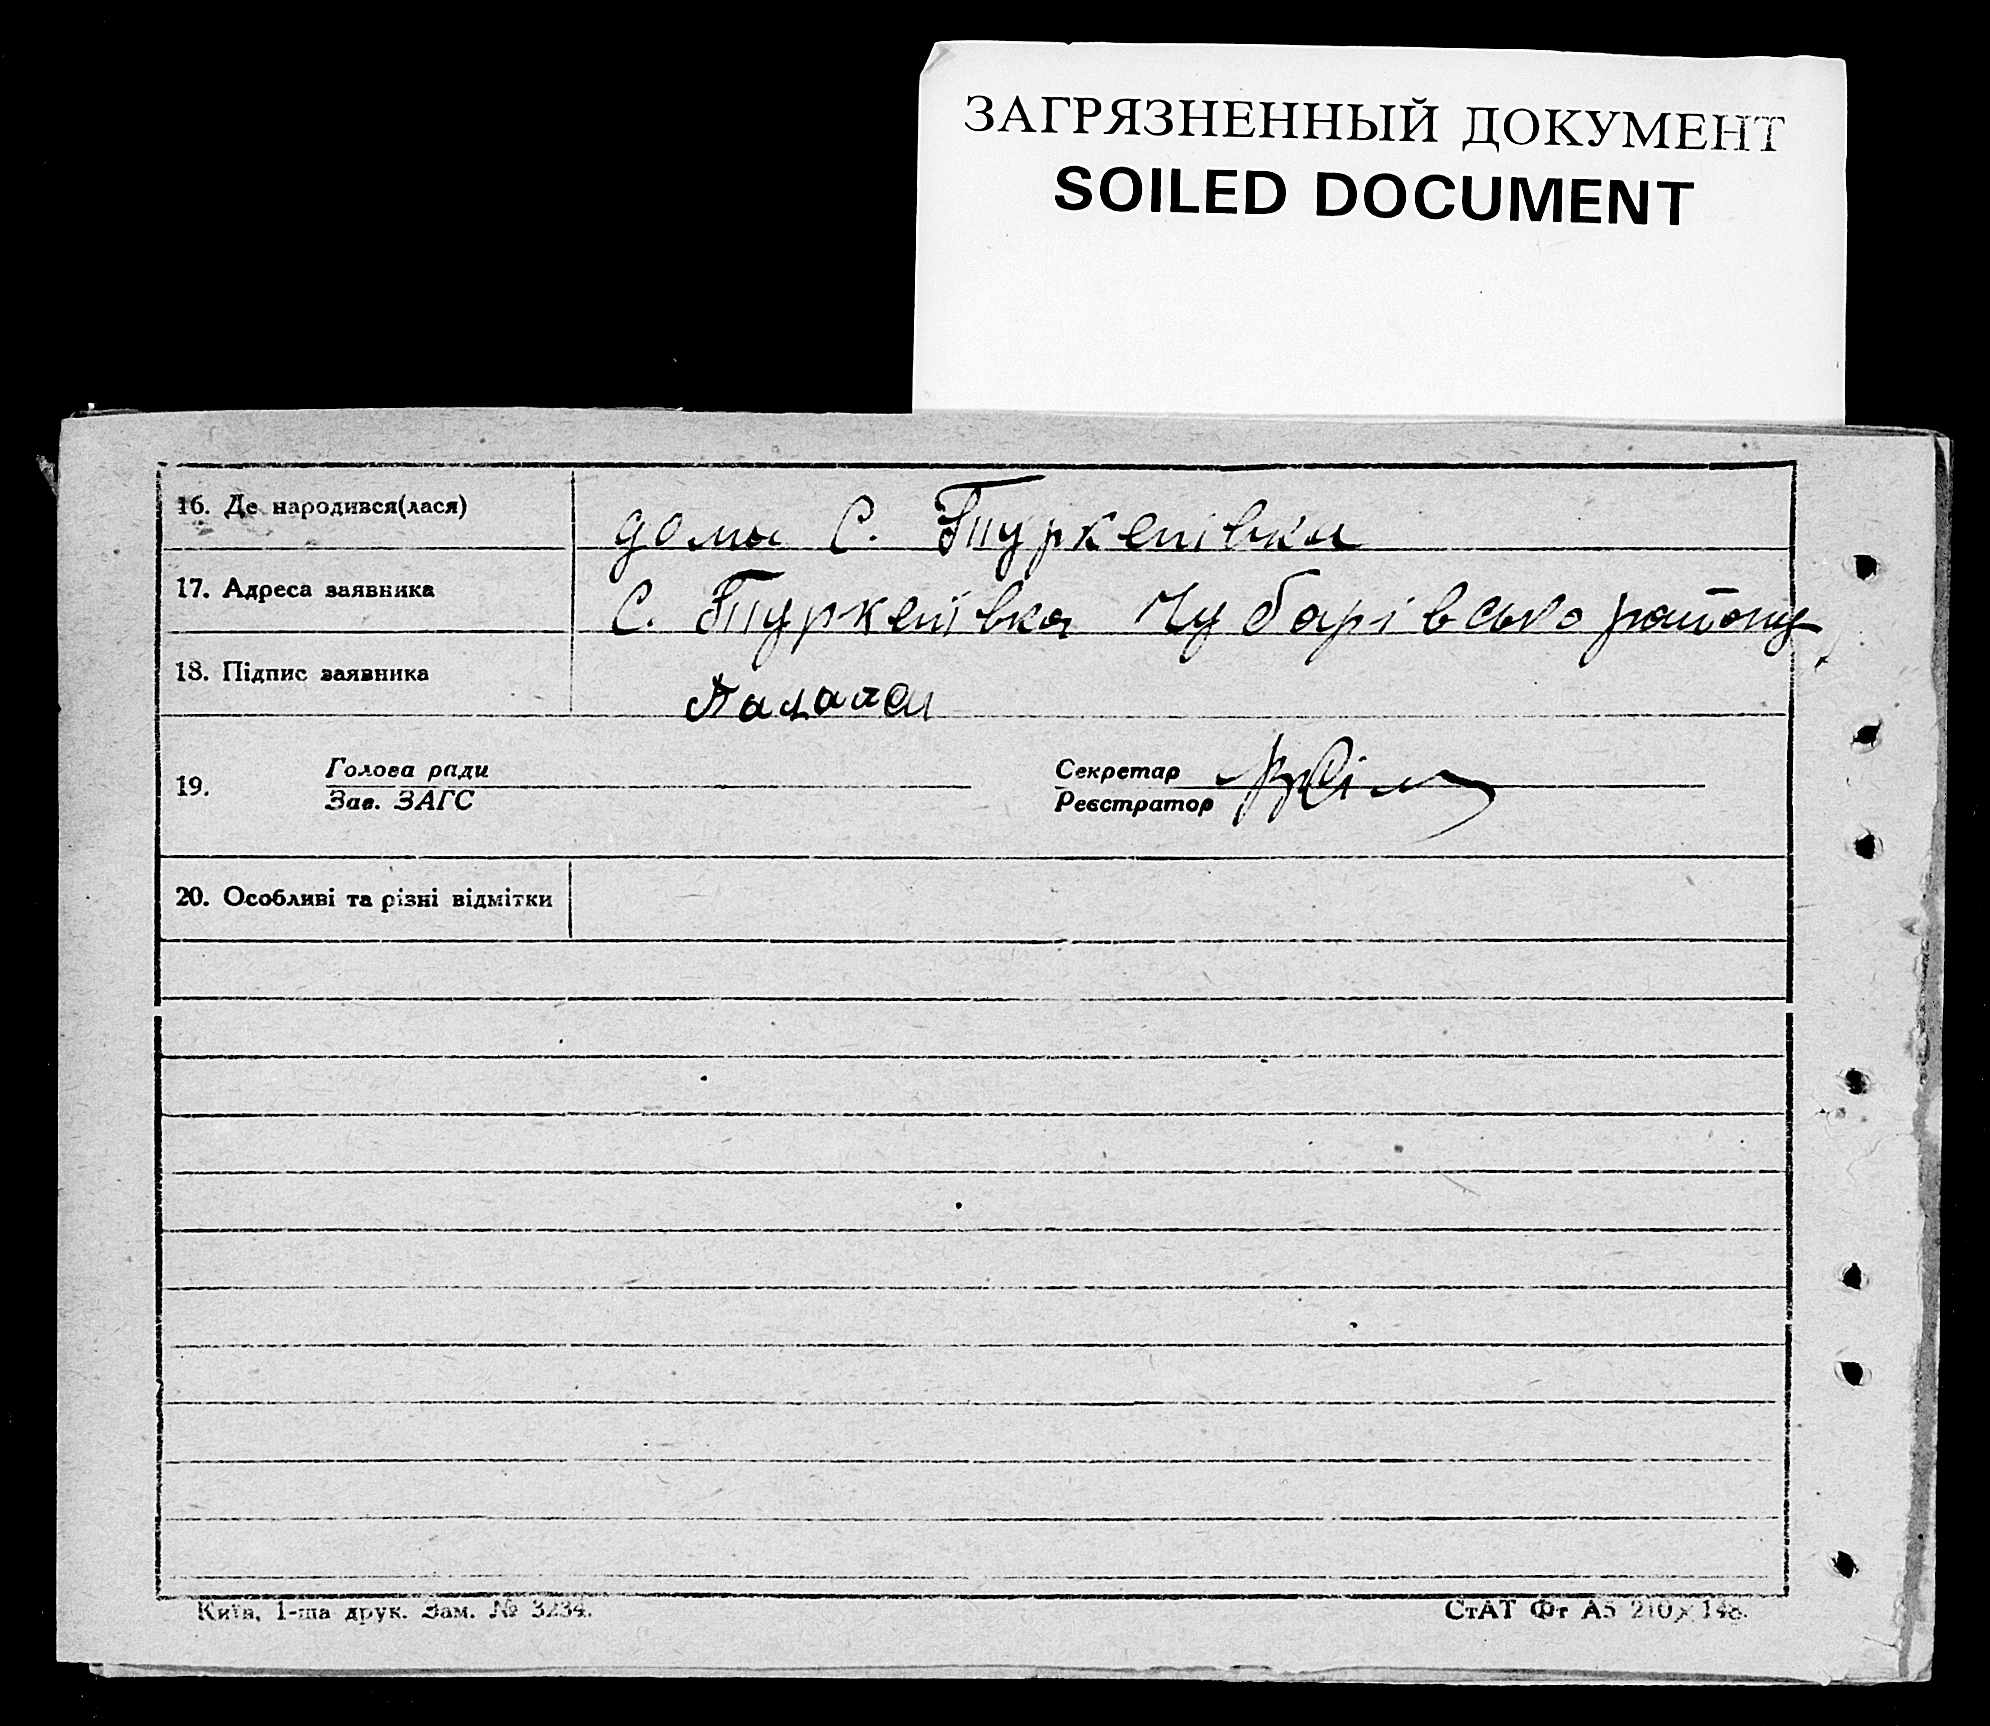 ЗАГРЯЗНЕННЫЙ ДОКУМЕНТ
SOILED DOCUMENT
16. Де народився(лася) дома С. Туркенівка
17. Адреса заявника С. Туркенівка Чубарівсько району
18. Підпис заявника
19. Голова ради
Зав. ЗАГС
Секретар
Реєстратор
20. Особливі та різні відмітки
Київ, 1-ша друк. Зам. № 3234.
СтАТ Фт А5 210×148.